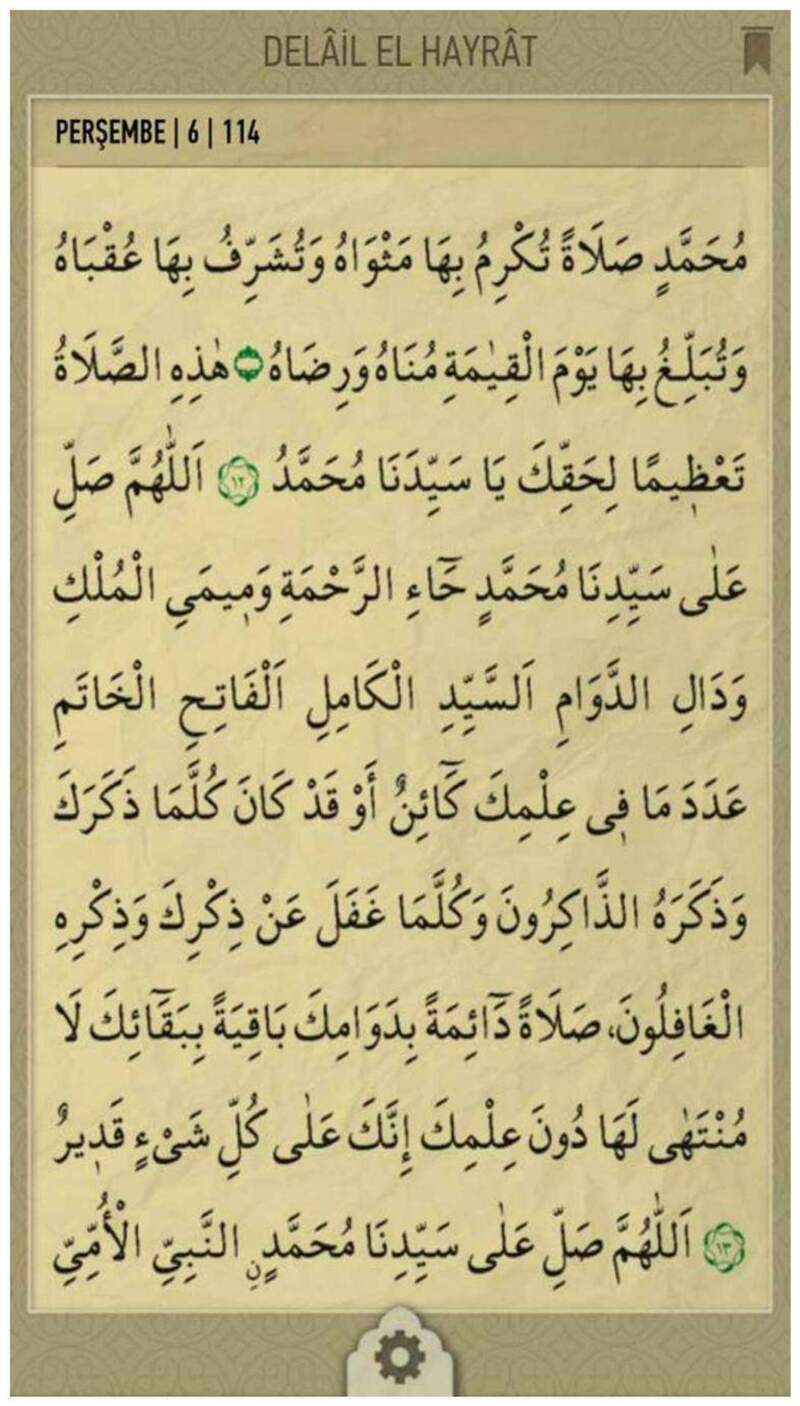 DELÂİL EL HAYRÂT
PERŞEMBE | 6 | 114
مُحَمَّدٍ صَلَاةً تُكْرِمُ بِهَا مَثْوَاهُ وَتُشَرِّفُ بِهَا عُقْبَاهُ
وَتُبَلِّغُ بِهَا يَوْمَ الْقِيٰمَةِ مُنَاهُ وَرِضَاهُ هٰذِهِ الصَّلَاةُ
تَعْظِيمًا لِحَقِّكَ يَا سَيِّدَنَا مُحَمَّدُ ١٢ اَللّٰهُمَّ صَلِّ
عَلٰى سَيِّدِنَا مُحَمَّدٍ حَٓاءِ الرَّحْمَةِ وَمِيمَيِ الْمُلْكِ
وَدَالِ الدَّوَامِ اَلسَّيِّدِ الْكَامِلِ اَلْفَاتِحِ الْخَاتَمِ
عَدَدَ مَا فِى عِلْمِكَ كَٓائِنٌ أَوْ قَدْ كَانَ كُلَّمَا ذَكَرَكَ
وَذَكَرَهُ الذَّاكِرُونَ وَكُلَّمَا غَفَلَ عَنْ ذِكْرِكَ وَذِكْرِهِ
الْغَافِلُونَ، صَلَاةً دَٓائِمَةً بِدَوَامِكَ بَاقِيَةً بِبَقَٓائِكَ لَا
مُنْتَهٰى لَهَا دُونَ عِلْمِكَ إِنَّكَ عَلٰى كُلِّ شَىْءٍ قَدِيرٌ
١٣ اَللّٰهُمَّ صَلِّ عَلٰى سَيِّدِنَا مُحَمَّدٍ نِ النَّبِيِّ الْأُمِّيِّ